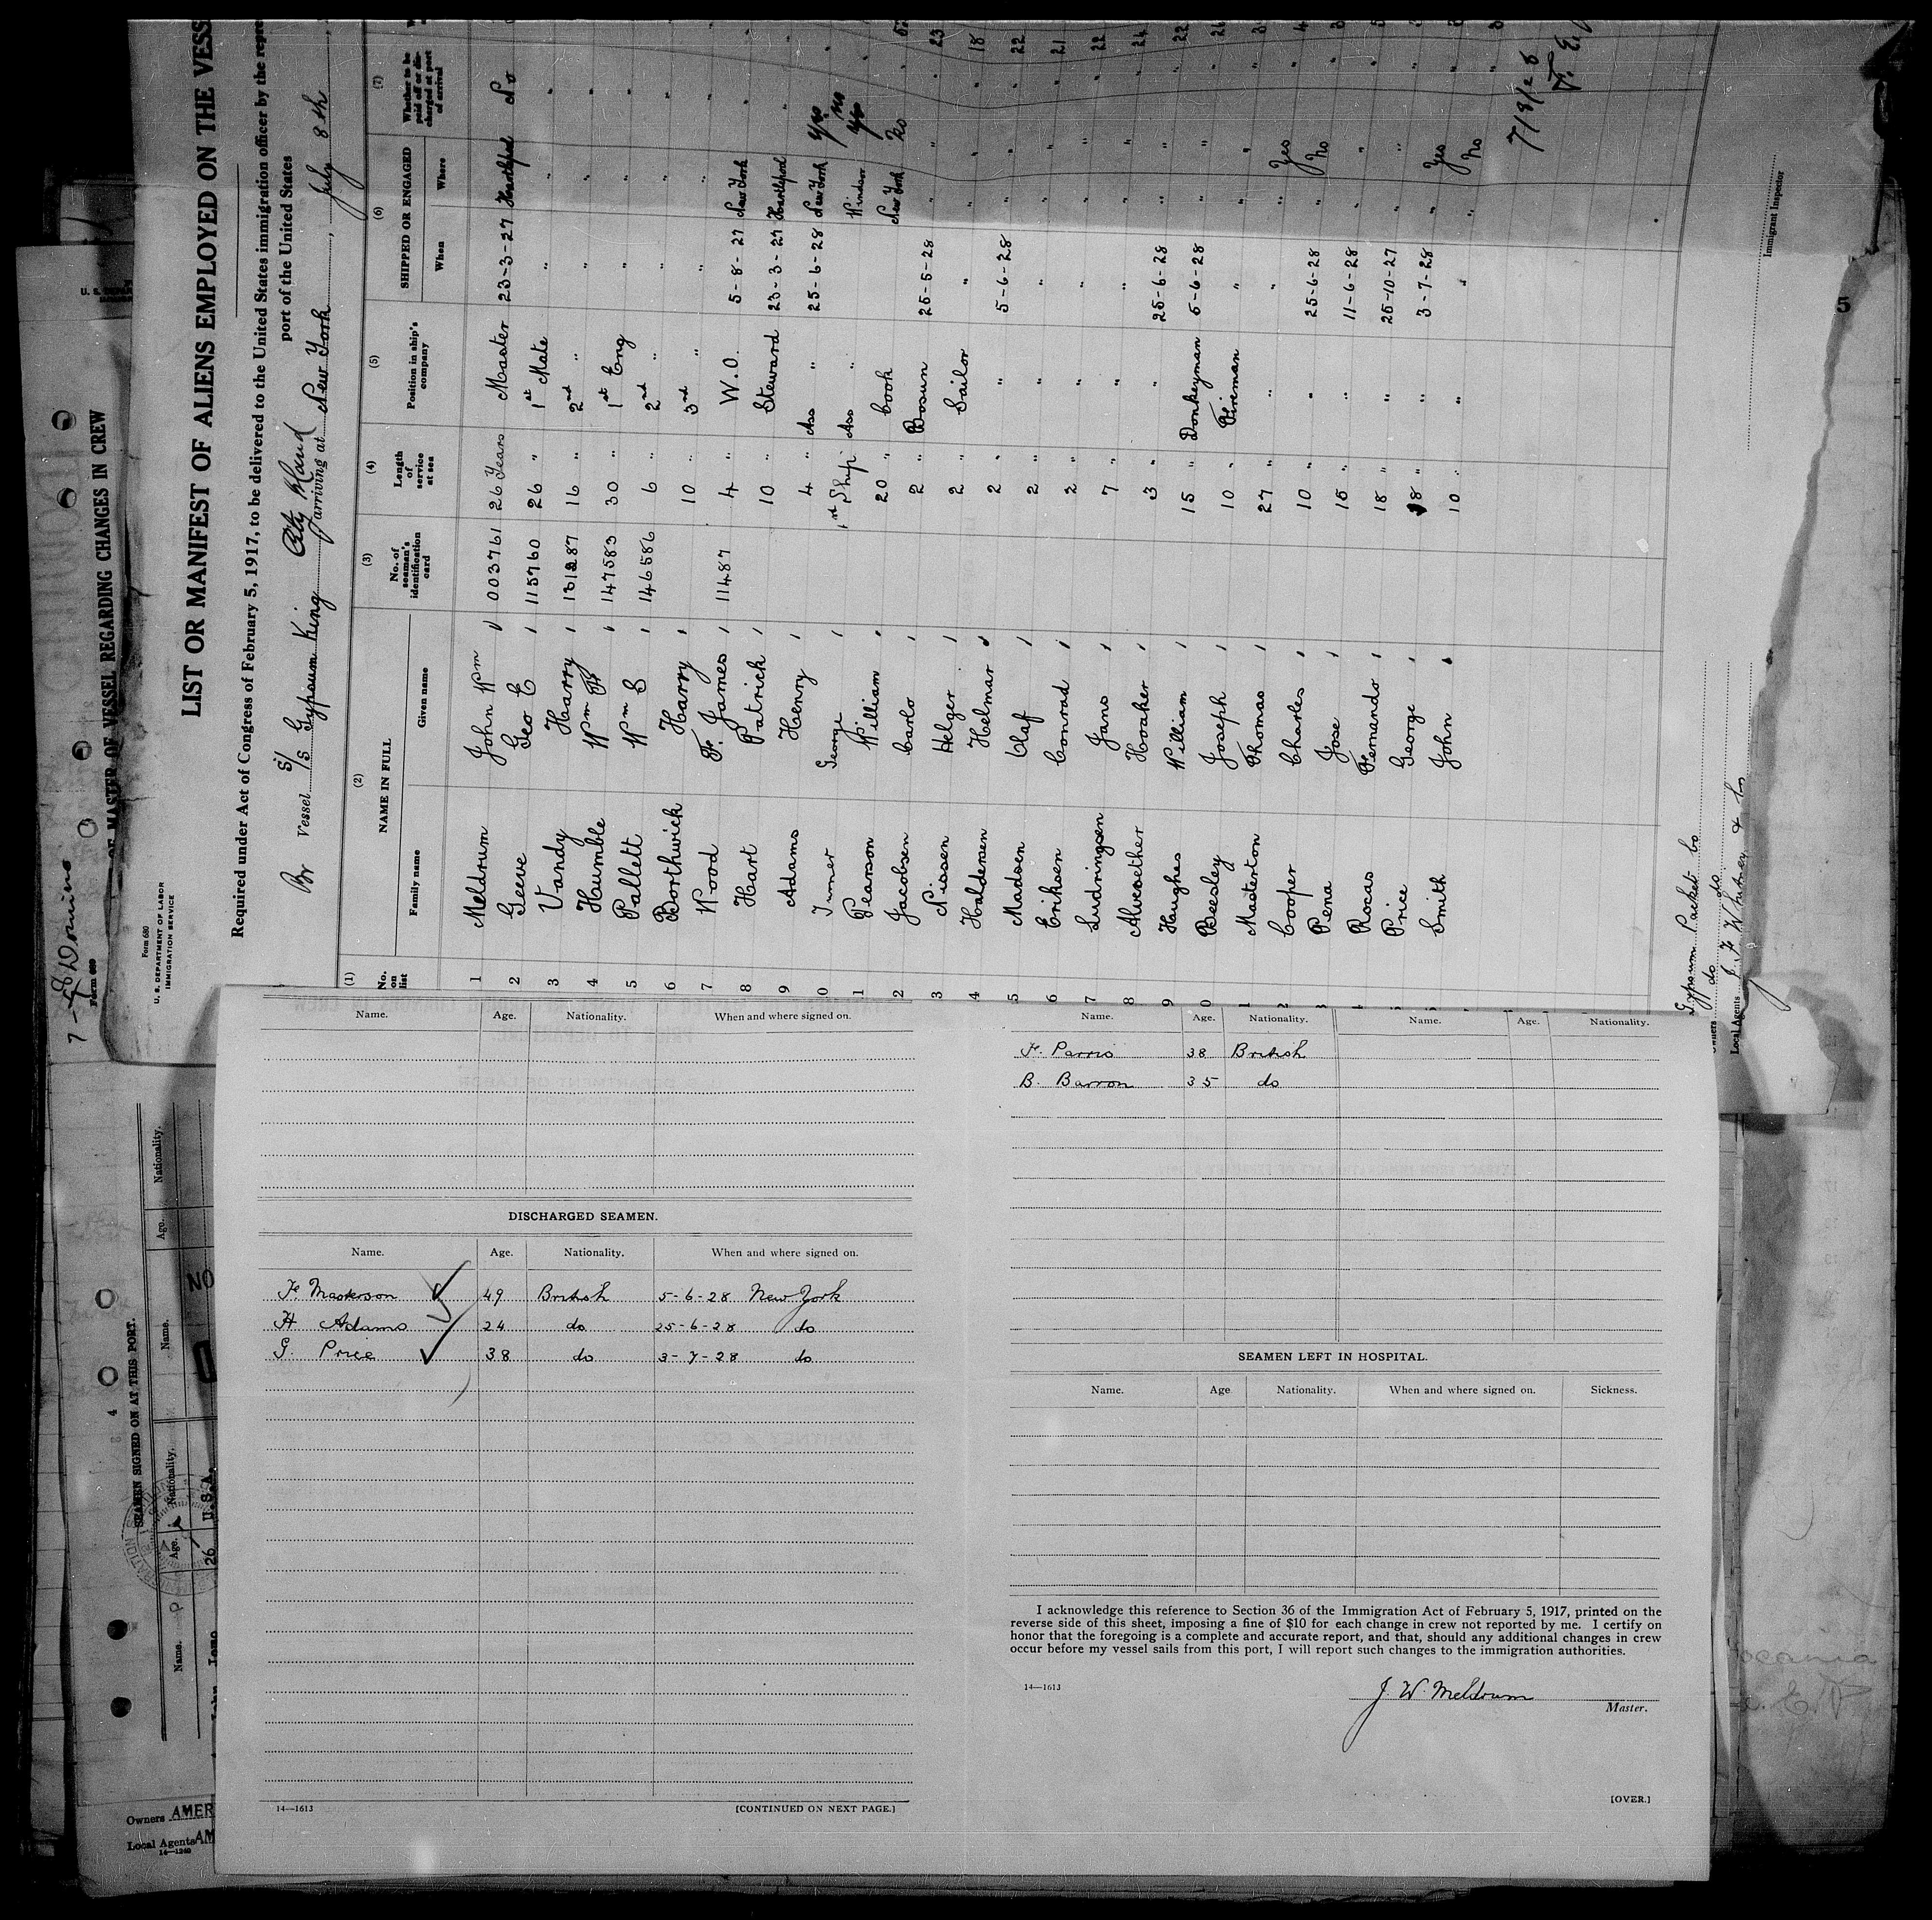 LIST OR MANIFEST OF ALIENS EMPLOYED ON THE VESS
Required under Act of Congress of February 5, 1917, to be delivered to the United States immigration officer by the repre
port of the United States
Form 680
U. S. DEPARTMENT OF LABOR
IMMIGRATION SERVICE
Br Vessel S/S Gypsum King arriving at New York, July 8th,
(1) (2) (3) (4) (5) (6) (7)
No. on list
NAME IN FULL
Family name Given name
No. of seaman's identification card
Length of service at sea
Position in ship's company
SHIPPED OR ENGAGED
When Where
Whether to be paid off or discharged at port of arrival
1 Meldrum John Wm 003761 26 Years Master 23-3-27 Hartlepool No
2 Geeve Geo E 115760 26 " 1st Mate " " "
3 Vardy Harry 131287 16 " 2nd " " " "
4 Humble Wm F 147583 30 " 1st Eng " " "
5 Pallett Wm S 146586 6 " 2nd " " " "
6 Borthwick Harry 10 " 3rd " " " "
7 Wood F. James 11487 4 " W.O. 5-8-27 New York "
8 Hart Patrick 10 " Steward 23-3-27 Hartlepool "
9 Adams Henry 4 " Ass " 25-6-28 New York yes
0 George 1st Ship Ass " Windsor
1 Pearson William 20 " Cook New York No
2 Jacobsen Carlo 2 " Bosun 25-5-28 " "
3 Nissen Helger 2 " Sailor " " "
4 Haldersen Helmar 2 " " 5-6-28 " "
5 Madsen Olaf 2 " " " " "
6 Eriksen Conrad 2 " " " " "
7 Ludringsen Jans 7 " " " " "
8 Haaker 3 " " 25-6-28 " "
9 Hughes William 15 " Donkeyman 5-6-28 " "
0 Beesley Joseph 10 " Fireman " " "
1 Masterton Thomas 27 " " " " Yes
2 Cooper Charles 10 " " 25-6-28 " No
Pena Jose 15 " " 11-6-28 " "
Rocas Fernando 18 " " 25-10-27 " "
Price George 18 " " 3-7-28 " Yes
Smith John 10 " " " " No
7/8/28
Immigrant Inspector
Owners Gypsum Packet Co
do do
Local Agents J. F. Whitney & Co
OF MASTER OF VESSEL REGARDING CHANGES IN CREW
Form 689
SEAMEN SIGNED ON AT THIS PORT.
Name. Age. Nationality. Name. Age. Nationality.
26 U.S.A.
NO
Owners AMER
Local Agents AM
14—1240
Name. Age. Nationality. When and where signed on.
DISCHARGED SEAMEN.
Name. Age. Nationality. When and where signed on.
F. Masterson 49 British 5-6-28 New York
H Adams 24 do 25-6-28 do
G. Price 38 do 3-7-28 do
14—1613 [CONTINUED ON NEXT PAGE.]
Name. Age. Nationality. Name. Age. Nationality.
F. Parris 38 British
B. Barron 35 do
SEAMEN LEFT IN HOSPITAL.
Name. Age Nationality. When and where signed on. Sickness.
I acknowledge this reference to Section 36 of the Immigration Act of February 5, 1917, printed on the
reverse side of this sheet, imposing a fine of $10 for each change in crew not reported by me. I certify on
honor that the foregoing is a complete and accurate report, and that, should any additional changes in crew
occur before my vessel sails from this port, I will report such changes to the immigration authorities.
14—1613
J. W. Meldrum
Master.
[OVER.]